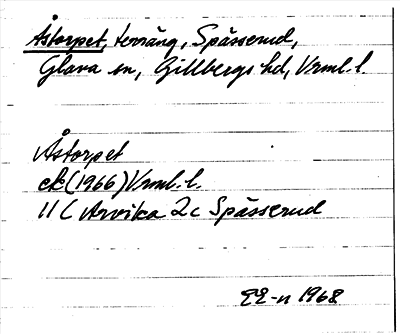 Åstorpet, terräng, Spässerud,
Glava sn, Gillbergs hd, Vrml. l.
Åstorpet
ek (1966) Vrml. l.
11 C Arvika 2c Spässerud
1968